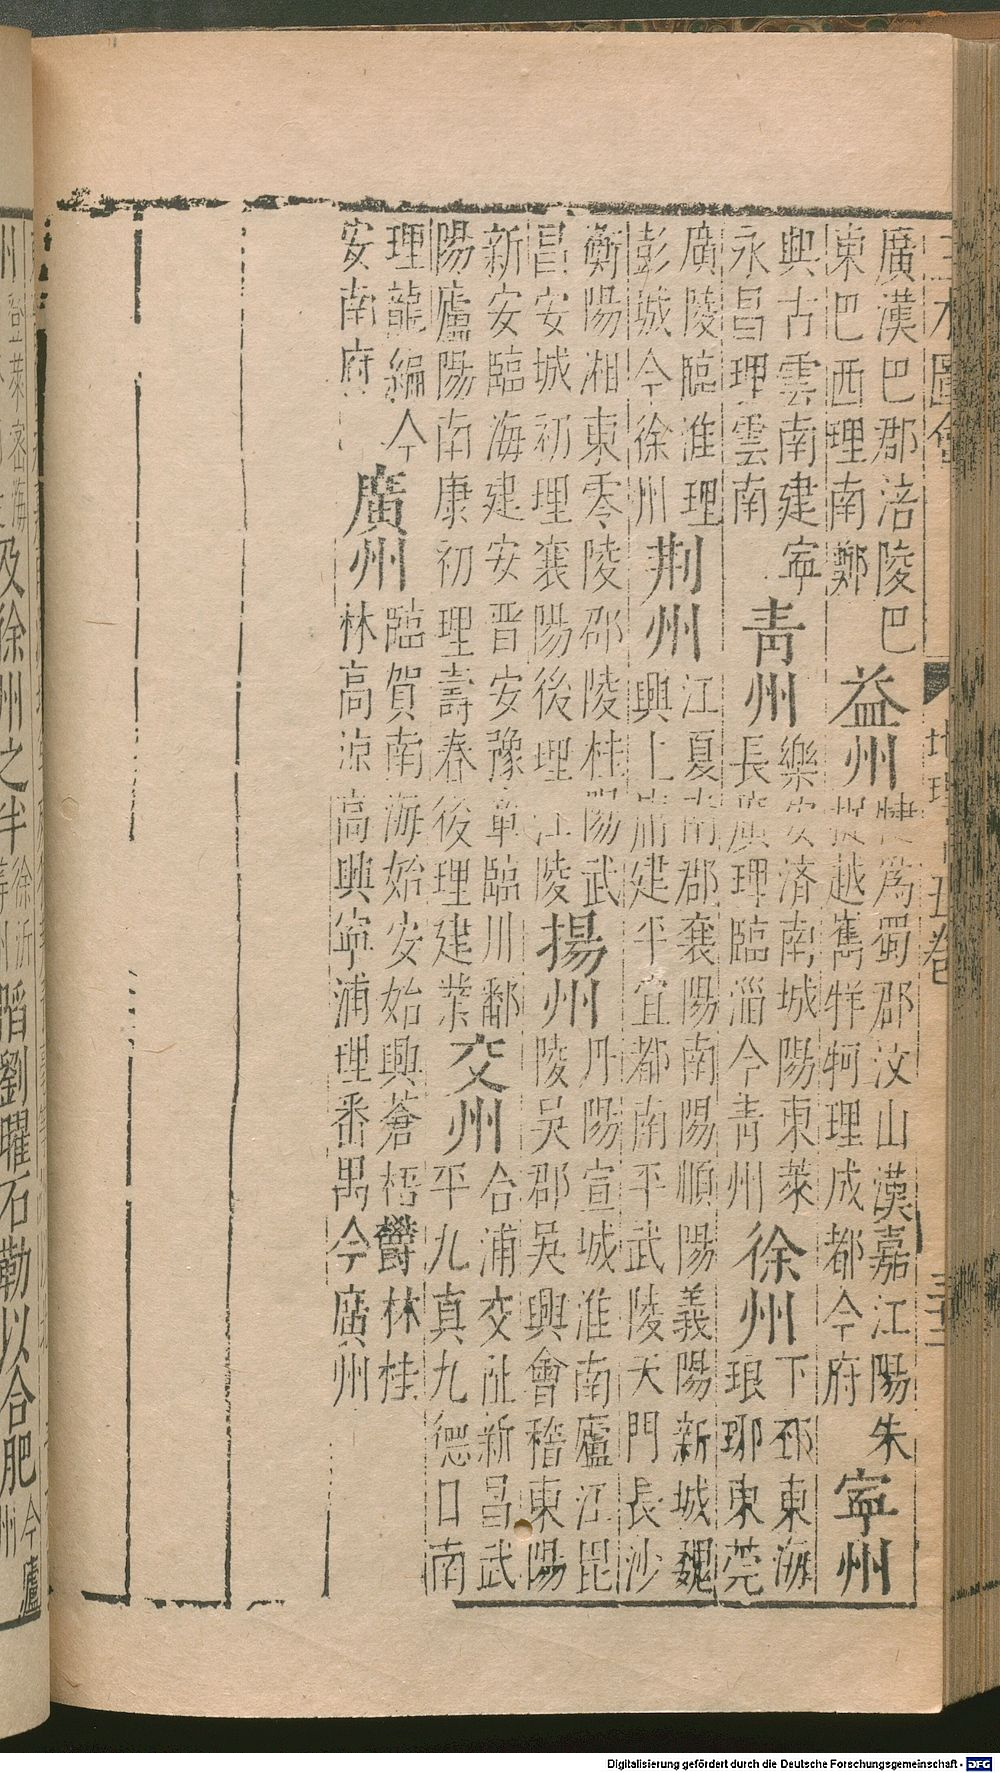 三才圖會
地理十五卷
三十二
廣漢巴郡涪陵巴
東巴西理南鄭
益州
犍爲蜀郡汶山漢嘉江陽朱
提越嶲牂牁理成都今府
寧州
興古雲南建寧
永昌理雲南
青州
樂安濟南城陽東萊
長廣理臨淄今青州
徐州
下邳東海
琅琊東莞
廣陵臨淮理
彭城今徐州
荆州
江夏南郡襄陽南陽順陽義陽新城魏
興上庸建平宜都南平武陵天門長沙
衡陽湘東零陵邵陵桂陽武
昌安城初理襄陽後理江陵
揚州
丹陽宣城淮南廬江毘
陵吳郡吳興會稽東陽
新安臨海建安晋安豫章臨川鄱
陽廬陽南康初理壽春後理建業
交州
合浦交趾新昌武
平九真九德日南
理龍編今
安南府
廣州
臨賀南海始安始興蒼梧鬱林桂
林高涼高興寧浦理番禺今廣州
登萊密海
及徐州之半
徐沂
劉曜石勒以合肥
今廬
州
Digitalisierung gefördert durch die Deutsche Forschungsgemeinschaft - DFG